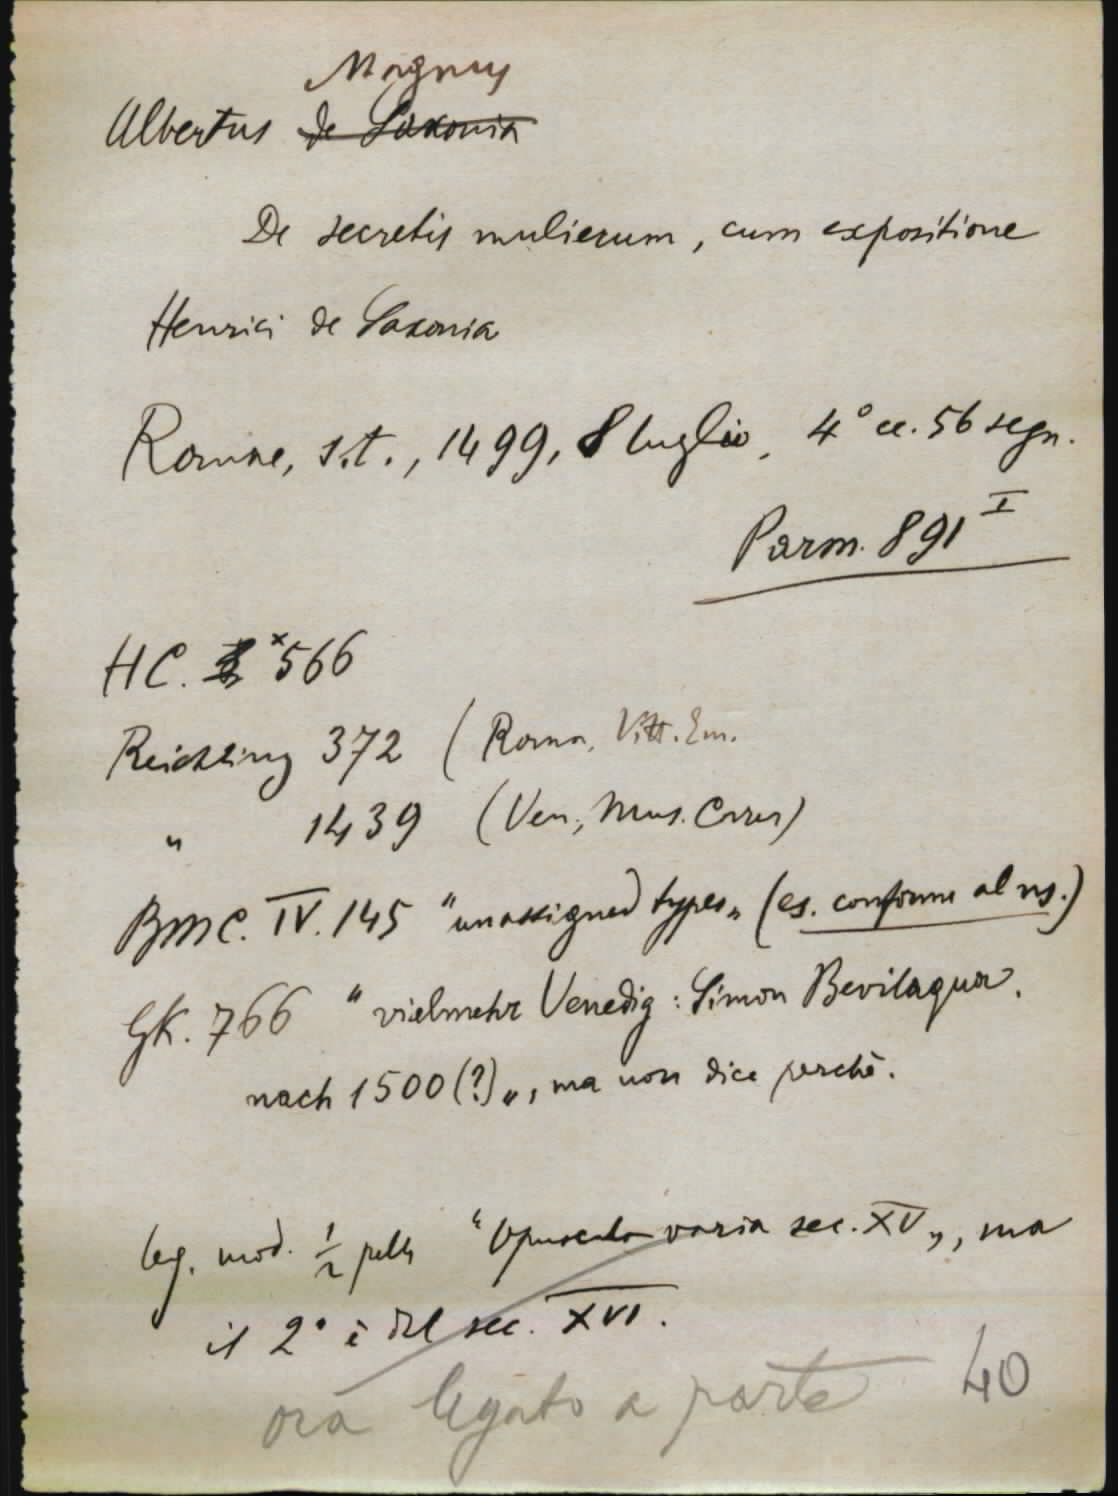 Magnus
Albertus de Saxonia
De secretis mulierum, cum expositione
Henrici de Saxonia
Romae, s.t., 1499, 8 luglio, 4° cc. 56 segn.
Parm. 891 I
HC. *566
Reichling 372 (Roma, Vitt. Em.
„ 1439 (Ven., Mus. Correr)
BMC. IV. 145 "unassigned types„ (es. conforme al ns.)
GK. 766 "vielmehr Venedig: Simon Bevilaqua,
nach 1500(?)„, ma non dice perchè.
leg. mod. 1/2 pelle "Opuscula varia sec. XV„, ma
il 2° è del sec. XVI.
ora legato a parte
40